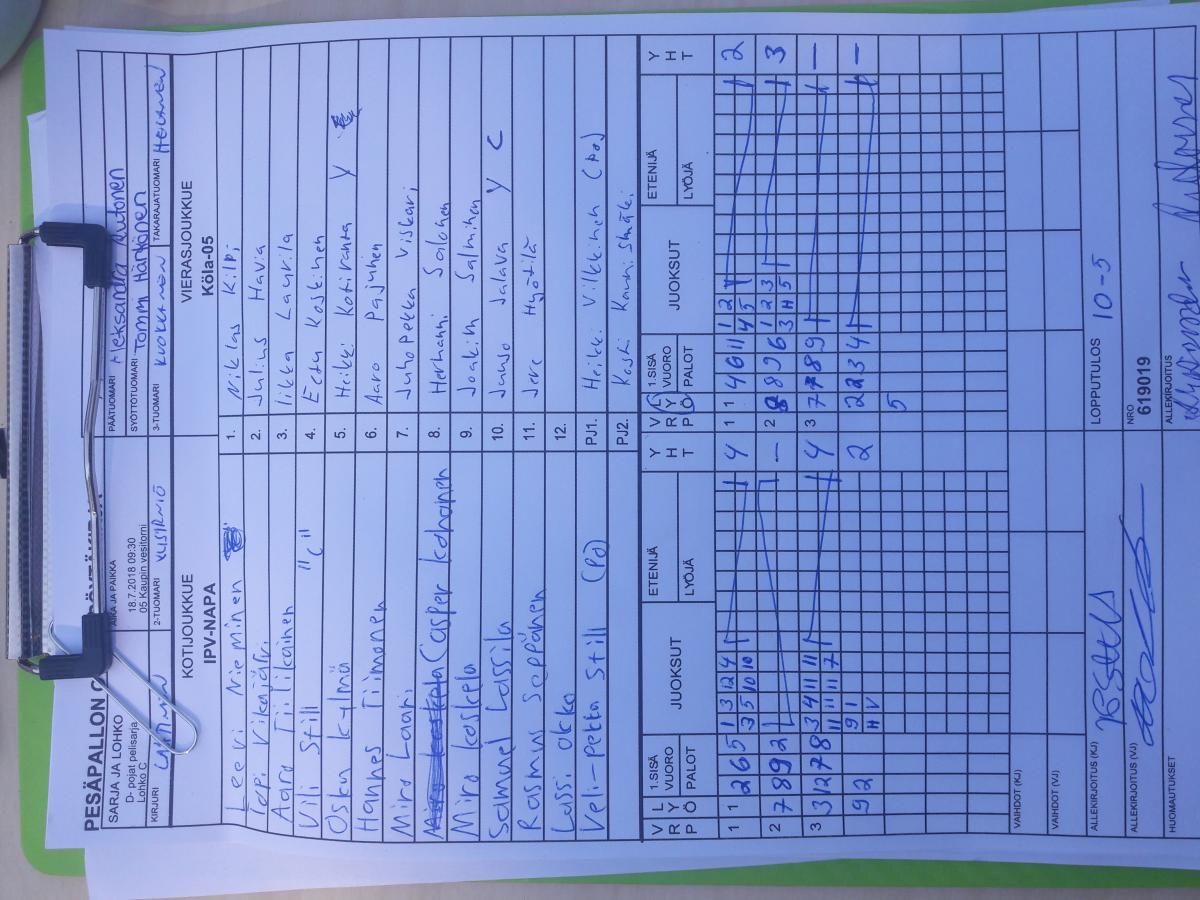 PESÄPALLON
SARJA JA LOHKO
D- pojat pelisarja
Lohko C
AIKA JA PAIKKA
18.7.2018 09:30
05 Kaupin vesitorni
PÄÄTUOMARI Aleksandra Autonen
SYÖTTÖTUOMARI Tommi Härkönen
KIRJURI
2-TUOMARI
3-TUOMARI
TAKARAJATUOMARI
KOTIJOUKKUE
IPV-NAPA
VIERASJOUKKUE
Köla-05
Eevi Nieminen
1. Niklas Kilpi
Topi Vikajärvi
2. Julius Havia
Aaro Tiilikainen
3. Iikka Laurila
Vili Still "C"
4. Eetu Koskinen
Osku Kylmä
5. Heikki Kotiranta Y
Hannes Tiimonen
6. Aaro Pajunen
Miro Laari
7. Juhopekka Viskari
Casper Kohonen
8. Hermanni Salonen
Miro Koskela
9. Joakim Salminen
Samuel Lassila
10. Juuso Jalava Y C
Rasmus Seppänen
11. Jere Hyötilä
Lassi Okka
12.
Veli-Pekka Still (PJ)
PJ1. Heikki Vilkkinen (PJ)
PJ2. Kosti Kaunismäki
V R P
L Y Ö
1.SISÄ VUORO
PALOT
JUOKSUT
ETENIJÄ
LYÖJÄ
Y H T
V R P
L Y Ö
1.SISÄ VUORO
PALOT
JUOKSUT
ETENIJÄ
LYÖJÄ
Y H T
1 1 2 6 5 1 3 12 4 4
3 5 10 10
1 1 4 6 11 1 2 2
4 5
2 7 8 9 2 —
2 8 8 9 6 1 2 3 3
3 H 5
3 3 12 7 8 3 4 11 11 4
11 11 11 7
3 7 7 8 9 —
9 2 9 1 2
H V
2 2 3 4 —
5
VAIHDOT (KJ)
VAIHDOT (VJ)
ALLEKIRJOITUS (KJ)
LOPPUTULOS 10-5
ALLEKIRJOITUS (VJ)
NRO
619019
HUOMAUTUKSET
ALLEKIRJOITUS